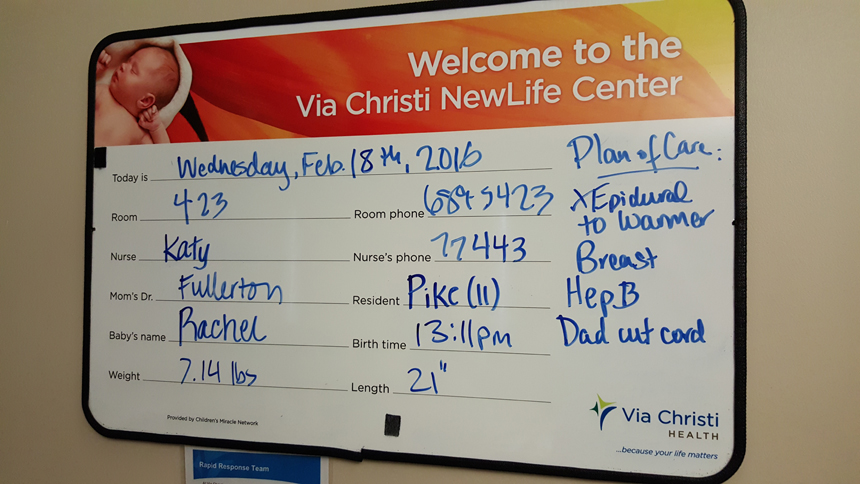 Welcome to the
Via Christi NewLife Center
Today is Wednesday, Feb. 18th, 2016
Room 423
Room phone 689-5423
Nurse Katy
Nurse's phone 77443
Mom's Dr. Fullerton
Resident Pike (II)
Baby's name Rachel
Birth time 13:11pm
Weight 7.14 lbs
Length 21"
Plan of Care:
XEpidural
to Warmer
Breast
Hep B
Dad cut cord
Provided by Children's Miracle Network
Via Christi
HEALTH
...because your life matters
Rapid Response Team